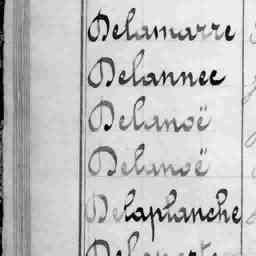 Delamarre
Delannee
Delanoë
Delanoë
Delaplanche